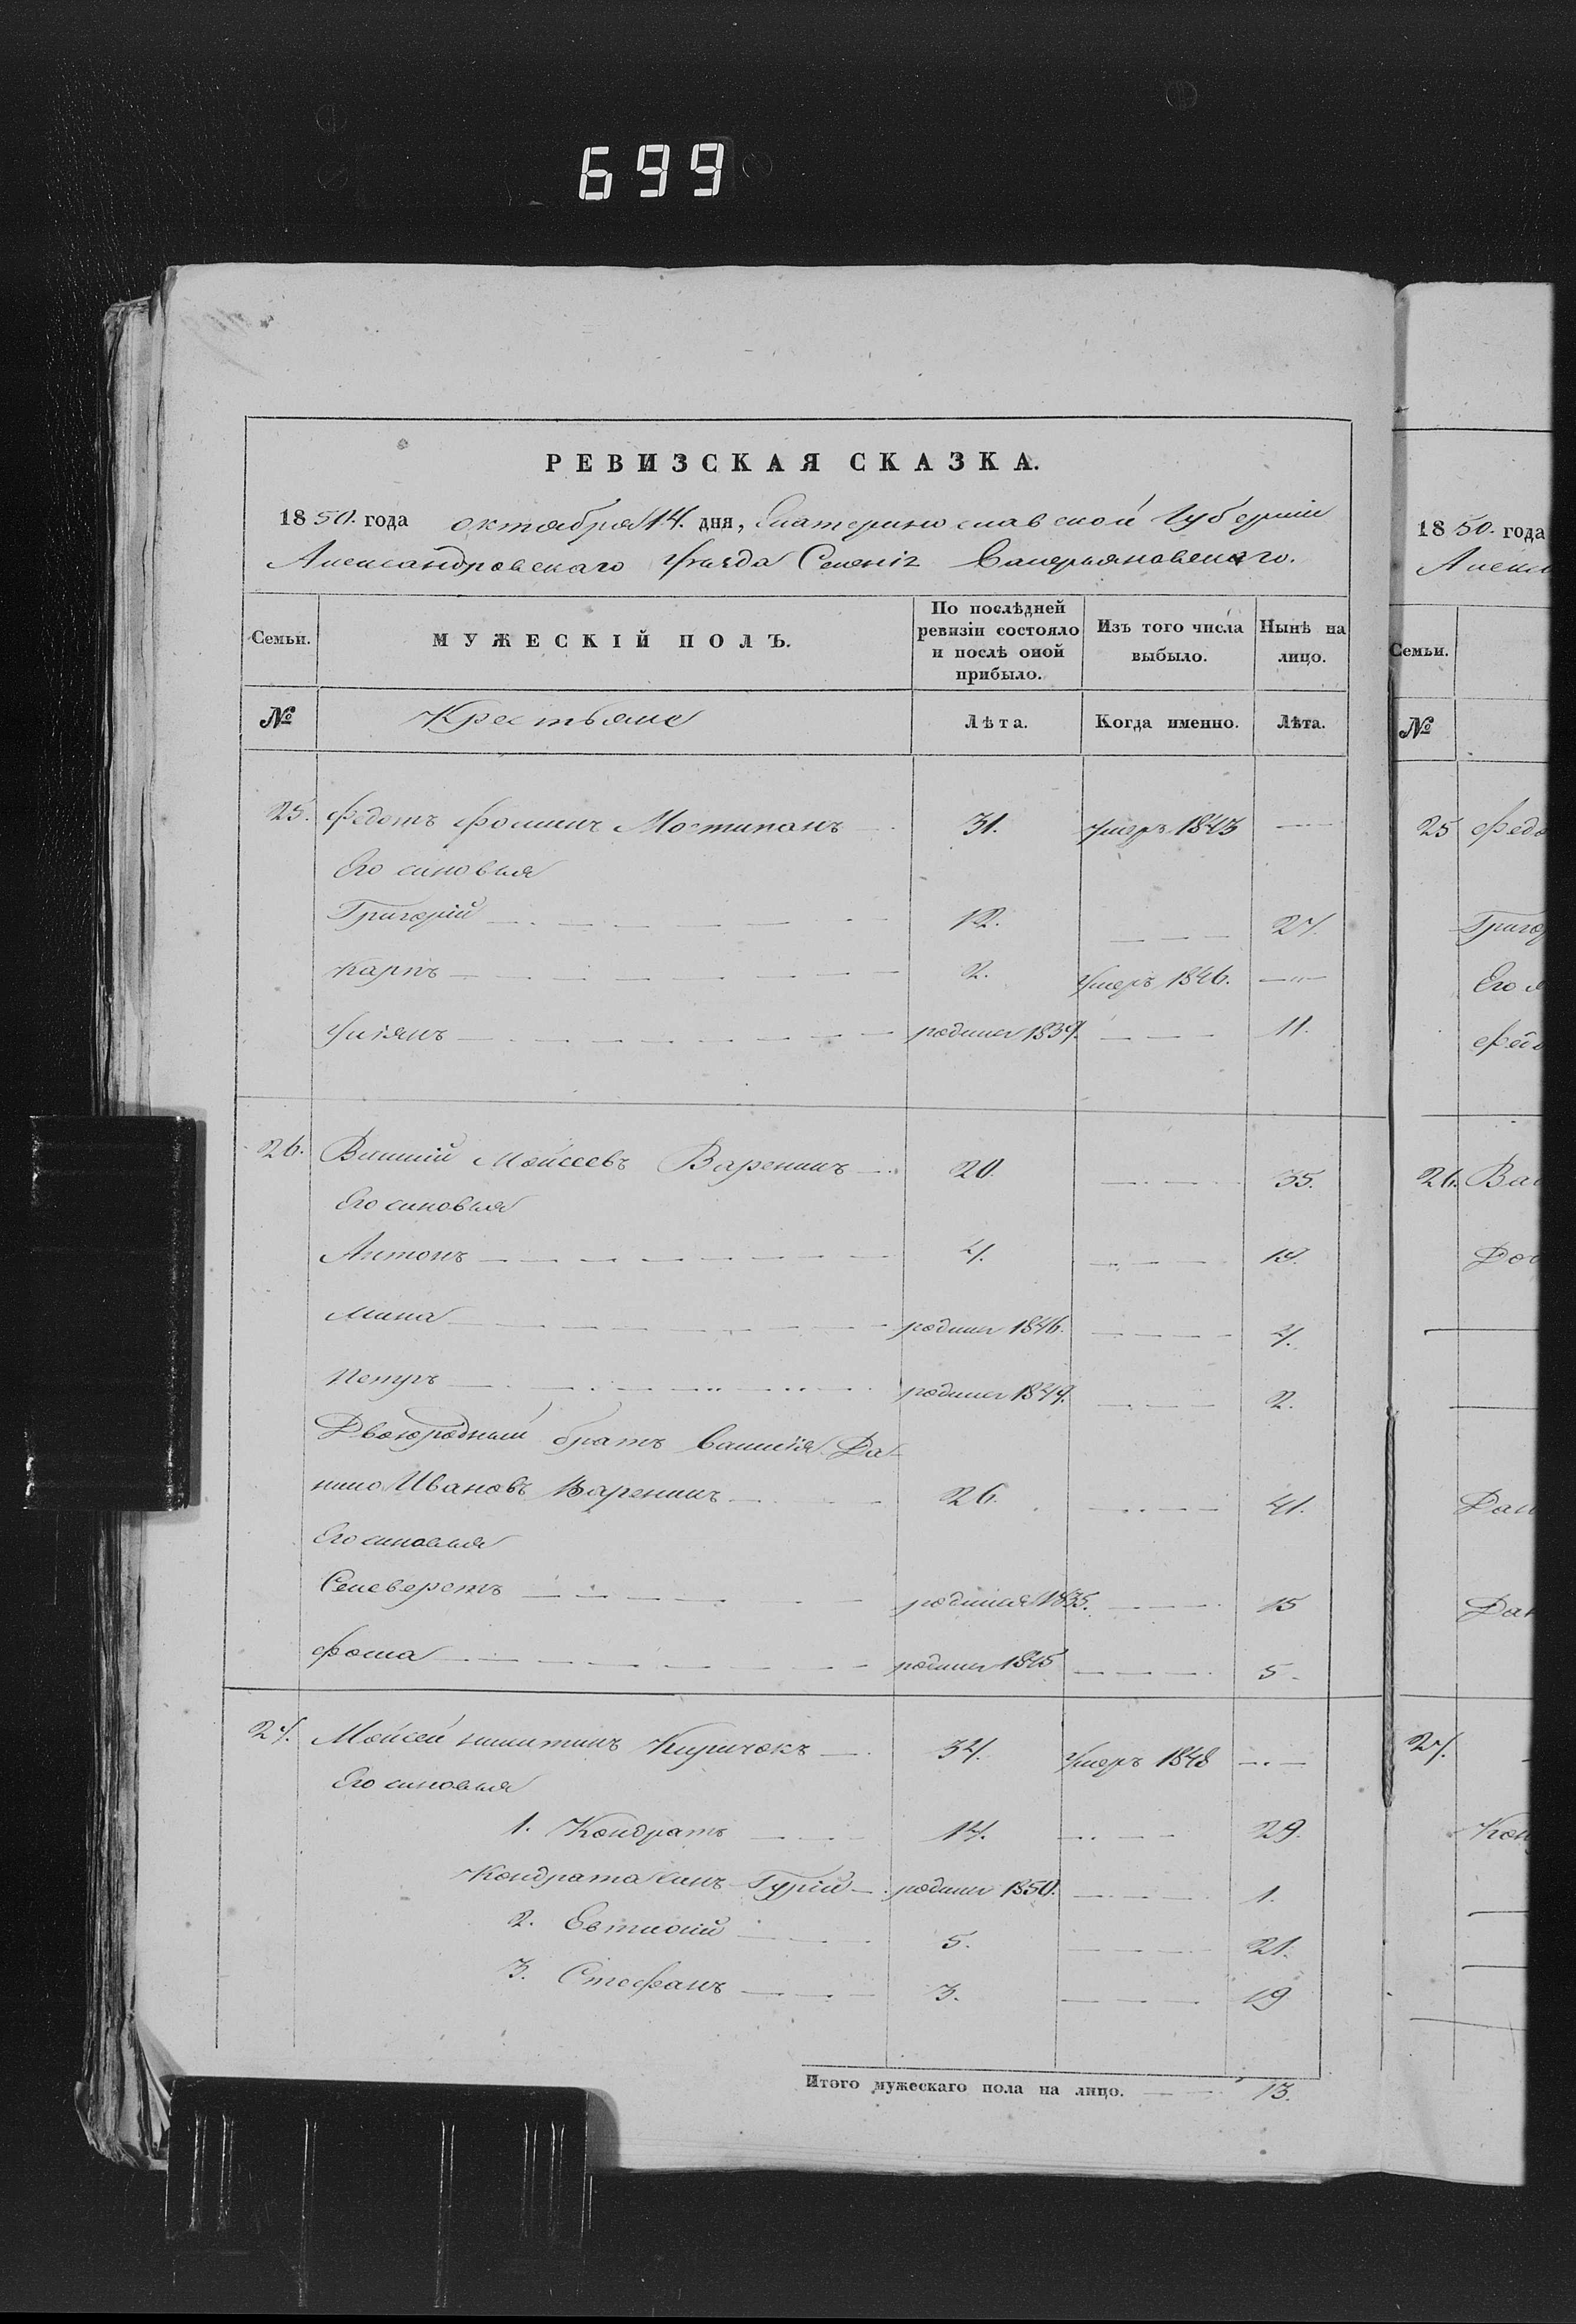 699
РЕВИЗСКАЯ СКАЗКА.
1850. года октября 14. дня, Екатеринославской Губерніи
Александровскаго Уѣзда Селенія Валерьяновскаго.
Семьи. МУЖЕСКІЙ ПОЛЪ. По послѣдней ревизіи состояло и послѣ оной прибыло. Изъ того числа выбыло. Нынѣ на лицо.
№ Крестьяне Лѣта. Когда именно. Лѣта.
25. Федотъ Фоминъ Мостипанъ 31. умеръ 1843
Его сыновья
Григорій 12. 27.
Карпъ 2. Умеръ 1846.
Уліянъ родился 1839. 11.
26. Василій Мойсеевъ Вареникъ 20. 35.
Его сыновья
Антонъ 4. 19.
Мина родился 1846. 4.
Петръ родился 1849. 2.
Двоюродный братъ Василія Да-
нило Ивановъ Вареникъ 26. 41.
Его сыновья
Селеверстъ родился 1835. 15
Фома родился 1845 5
27. Мойсей Никитинъ Киричокъ 34. Умеръ 1848
Его сыновья
1. Кондратъ 14. 29.
Кондрата сынъ Гурій родился 1850. 1.
2. Евтихій 5. 21.
3. Стефанъ 3. 19
Итого мужескаго пола на лицо. 13.
1850. года
Алекс
Семьи.
№
25 Федо
Григор
Его
Федо
26. Вас
Дан
27.
Кон